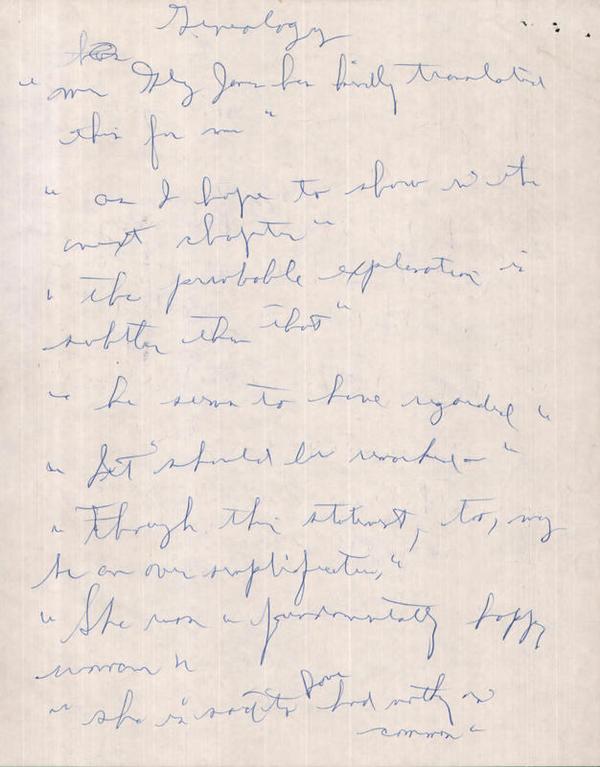 Genealogy
" Mrs Jones has kindly translated
this for me "
" as I hope to show in the
next chapter "
" the probable explanation is
subtler than that "
" he seems to have regarded "
" should be "
" Though this statement, too, may
be an over simplification, "
" She was a fundamentally happy
woman "
" she is said to have had nothing in
common "